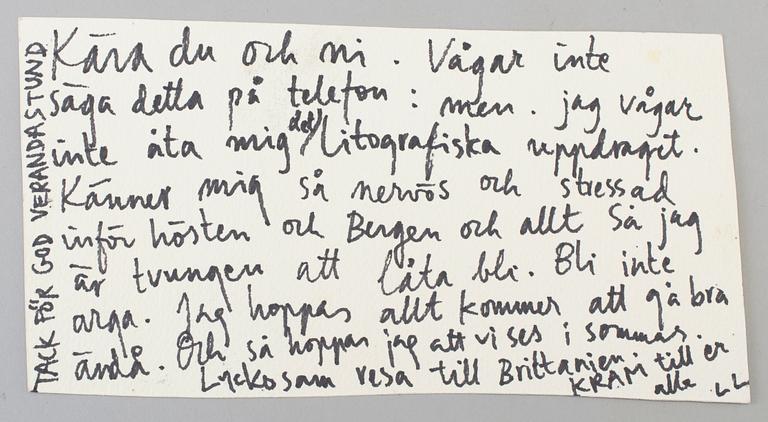 Kära du och ni. Vågar inte
säga detta på telefon: men. jag vågar
inte åta mig det) litografiska uppdraget.
Känner mig så nervös och stressad
inför hösten och Bergen och allt så jag
är tvungen att låta bli. Bli inte
arga. Jag hoppas allt kommer att gå bra
ändå. Och så hoppas jag att vi ses i sommar.
Lyckosam resa till Brittanien. KRAM till er
alla LL
TACK FÖR GOD VERANDASTUND